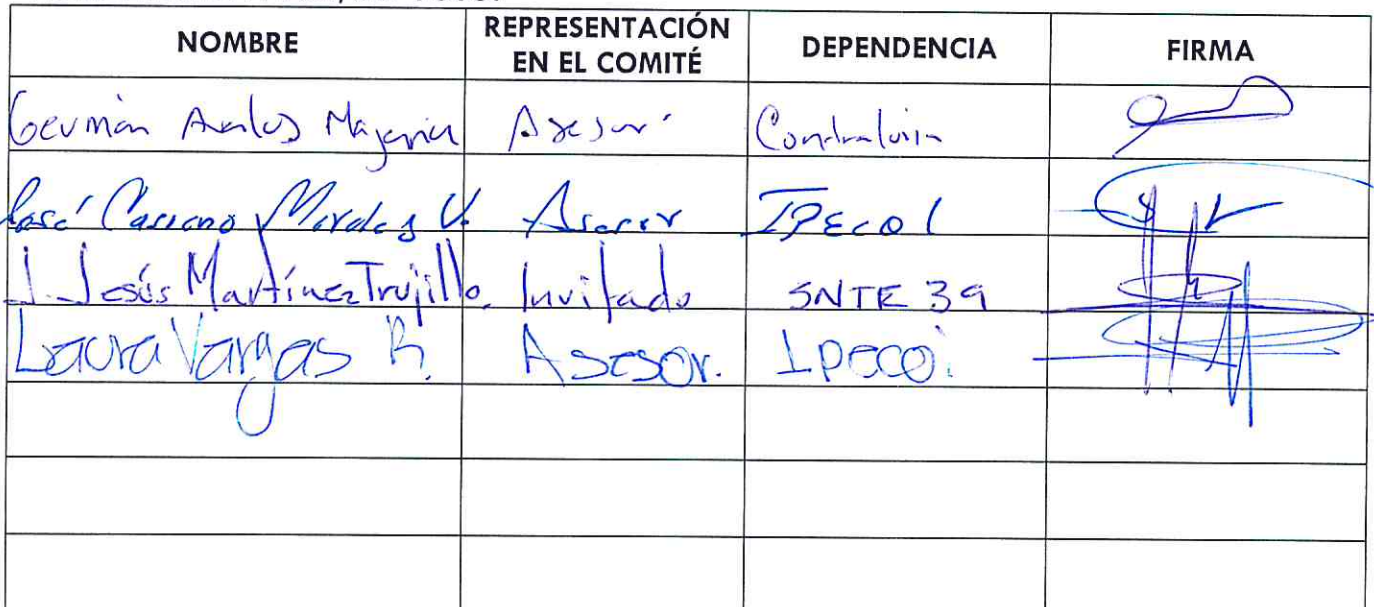 NOMBRE REPRESENTACIÓN EN EL COMITÉ DEPENDENCIA FIRMA
Germán Avalos Asesor Contraloria
José Casiano Morales V. Asesor IPECOL
J. Jesús Martínez Trujillo. Invitado SNTE 39
Laura Vargas R. Asesor. Ipecol